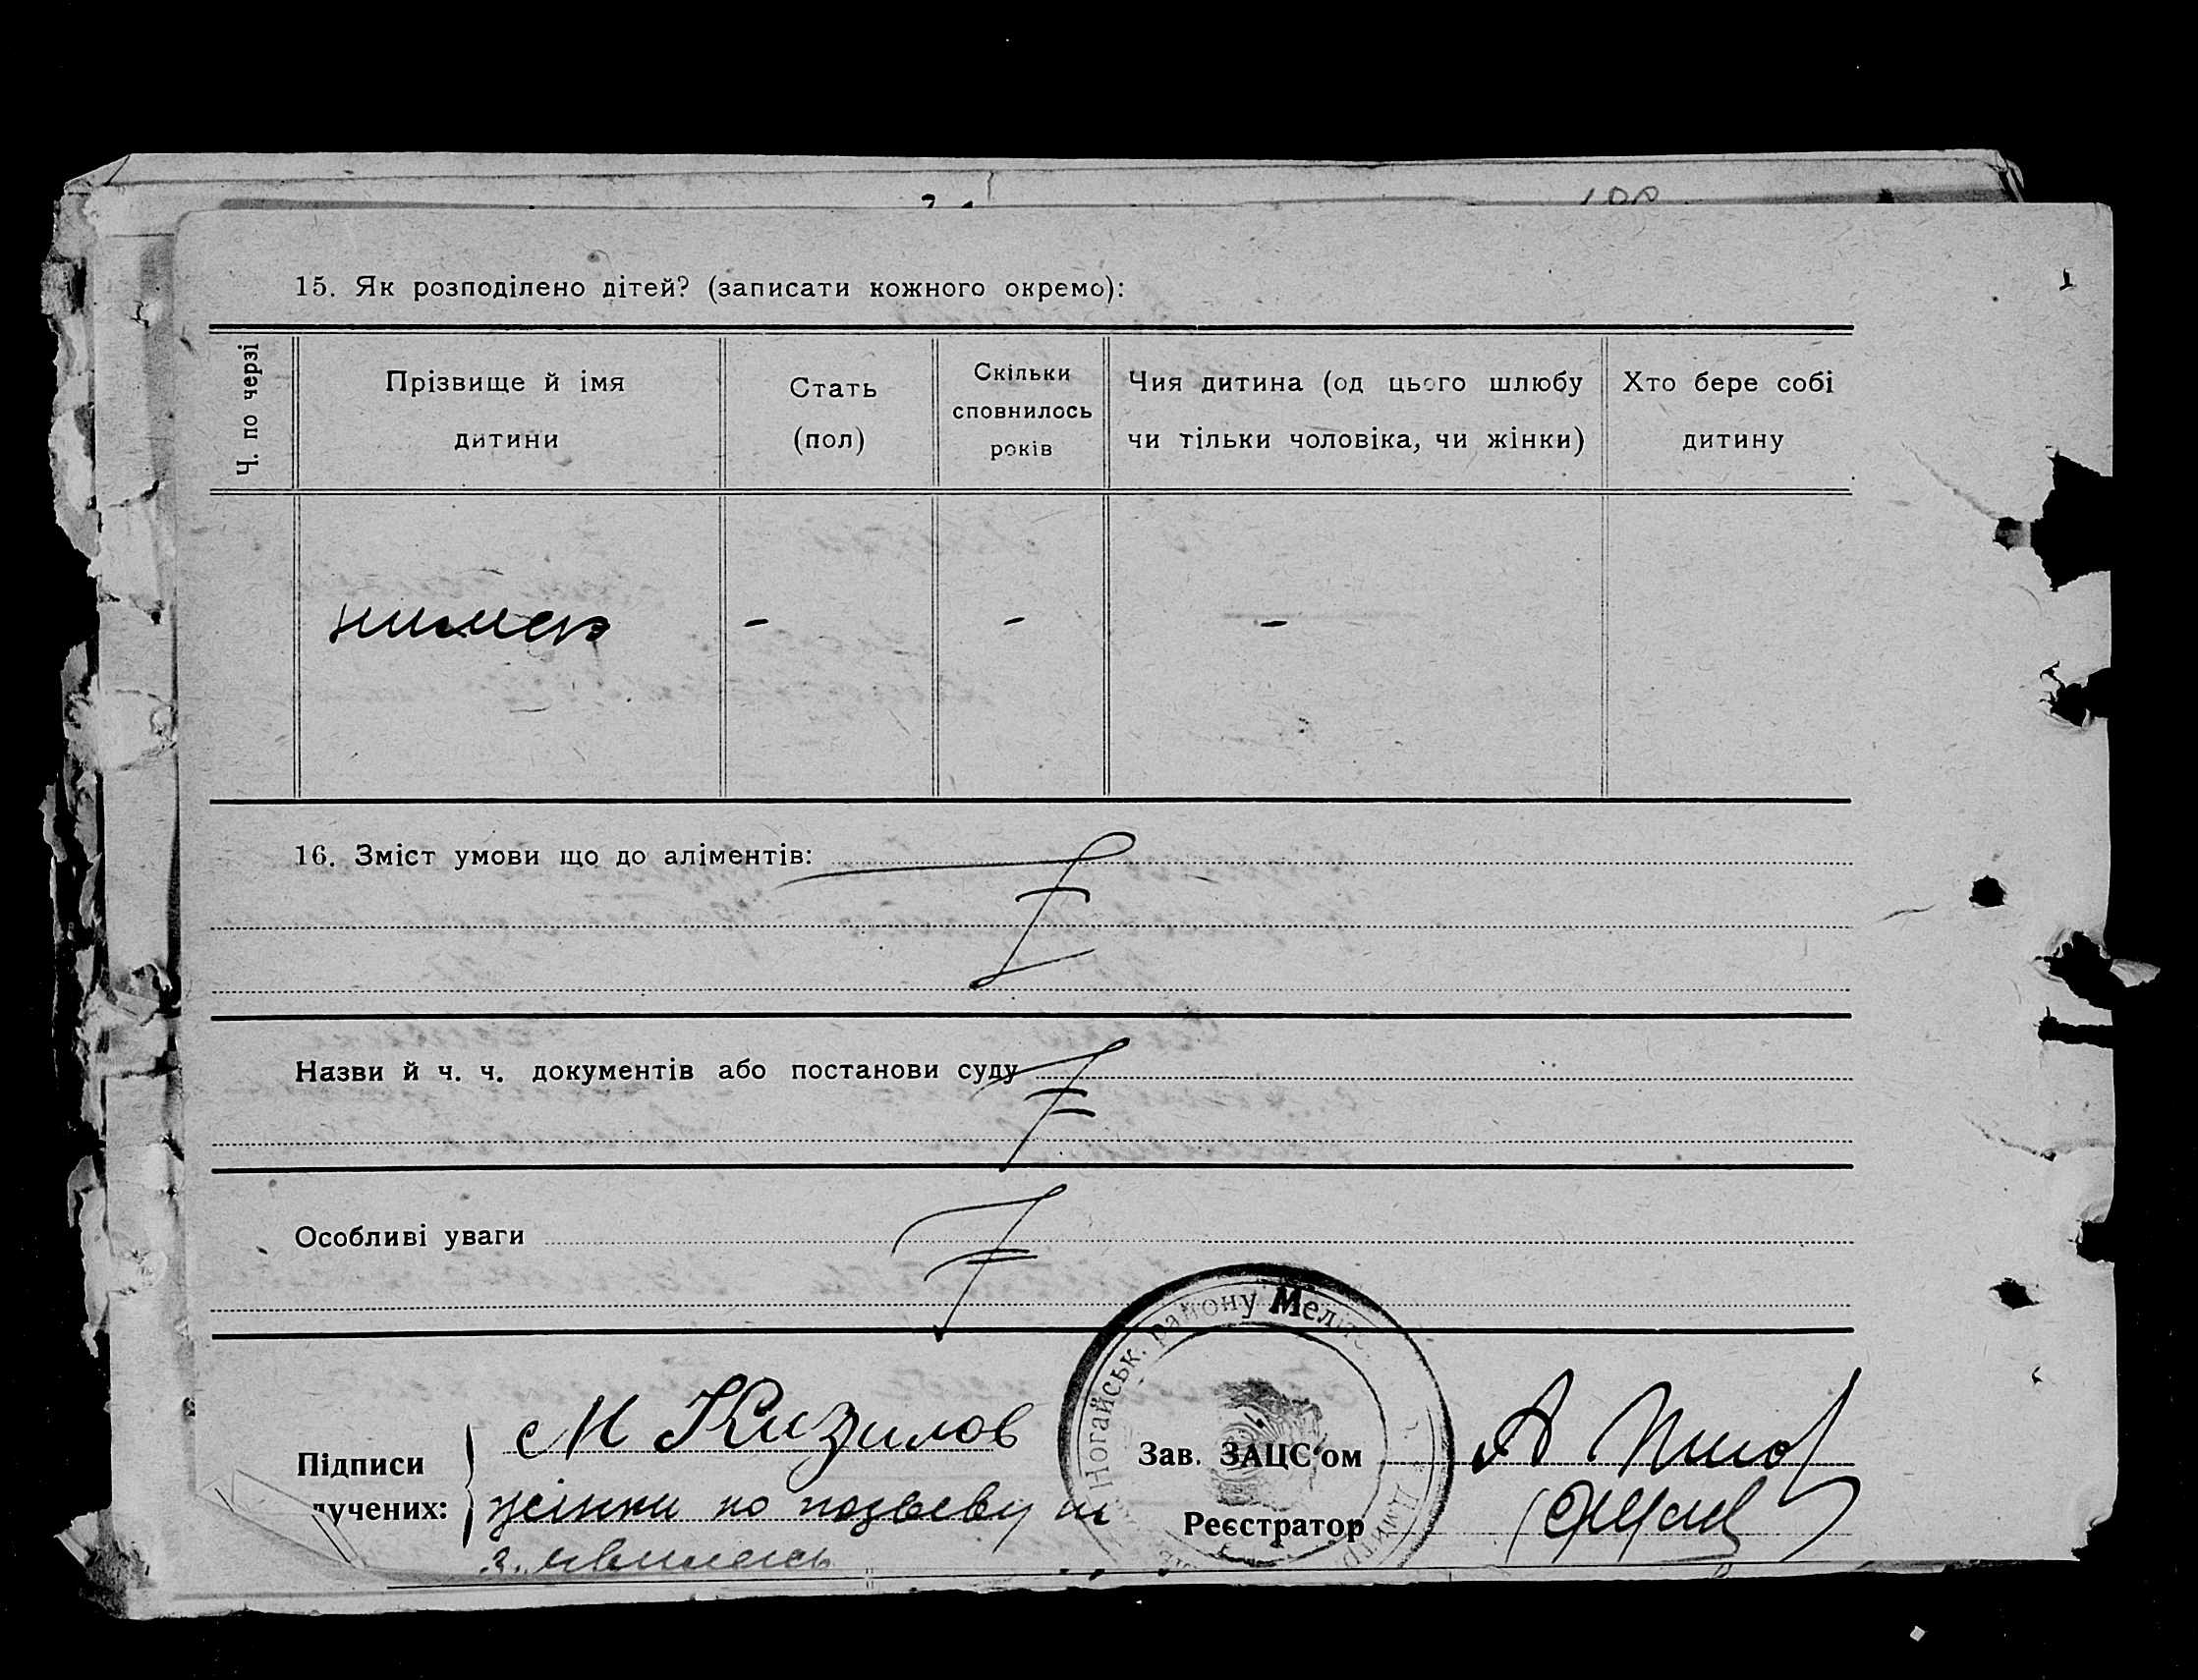 15. Як розподілено дітей? (записати кожного окремо):
Ч. по черзі
Прізвище й імя дитини
Стать (пол)
Скільки сповнилось років
Чия дитина (од цього шлюбу чи тільки чоловіка, чи жінки)
Хто бере собі дитину
- - -
16. Зміст умови що до аліментів:
Назви й ч. ч. документів або постанови суду
Особливі уваги
Ногайськ. району Меліт
Підписи
лучених:
М Кизилов
жінки по
Зав. ЗАЦС'ом
Реєстратор